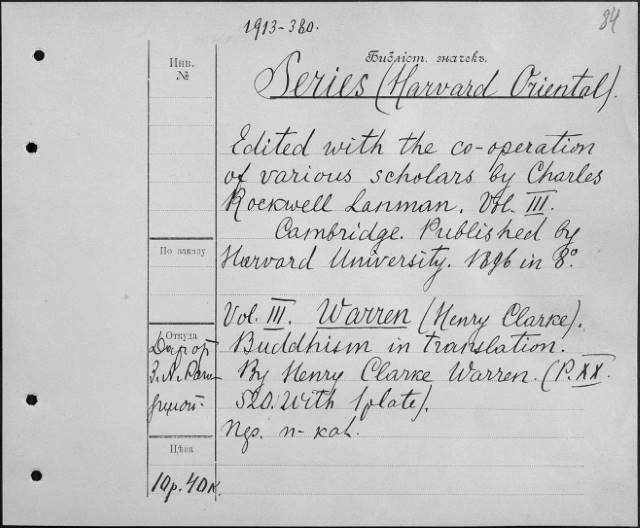 1913-380.
84
Инв.
№
Библіот. значекъ.
Series (Harvard Oriental).
Edited with the co-operation
of various scholars by Charles
Rockwell Lanman. Vol. III.
Cambridge. Published by
По заказу
Harvard University. 1896 in 8º
Vol. III. Warren (Henry Clarke).
Откуда
Buddhism in translation.
By Henry Clarke Warren. (P. XX.
520. With 1 plate).
Цѣна
10 р. 40 к.